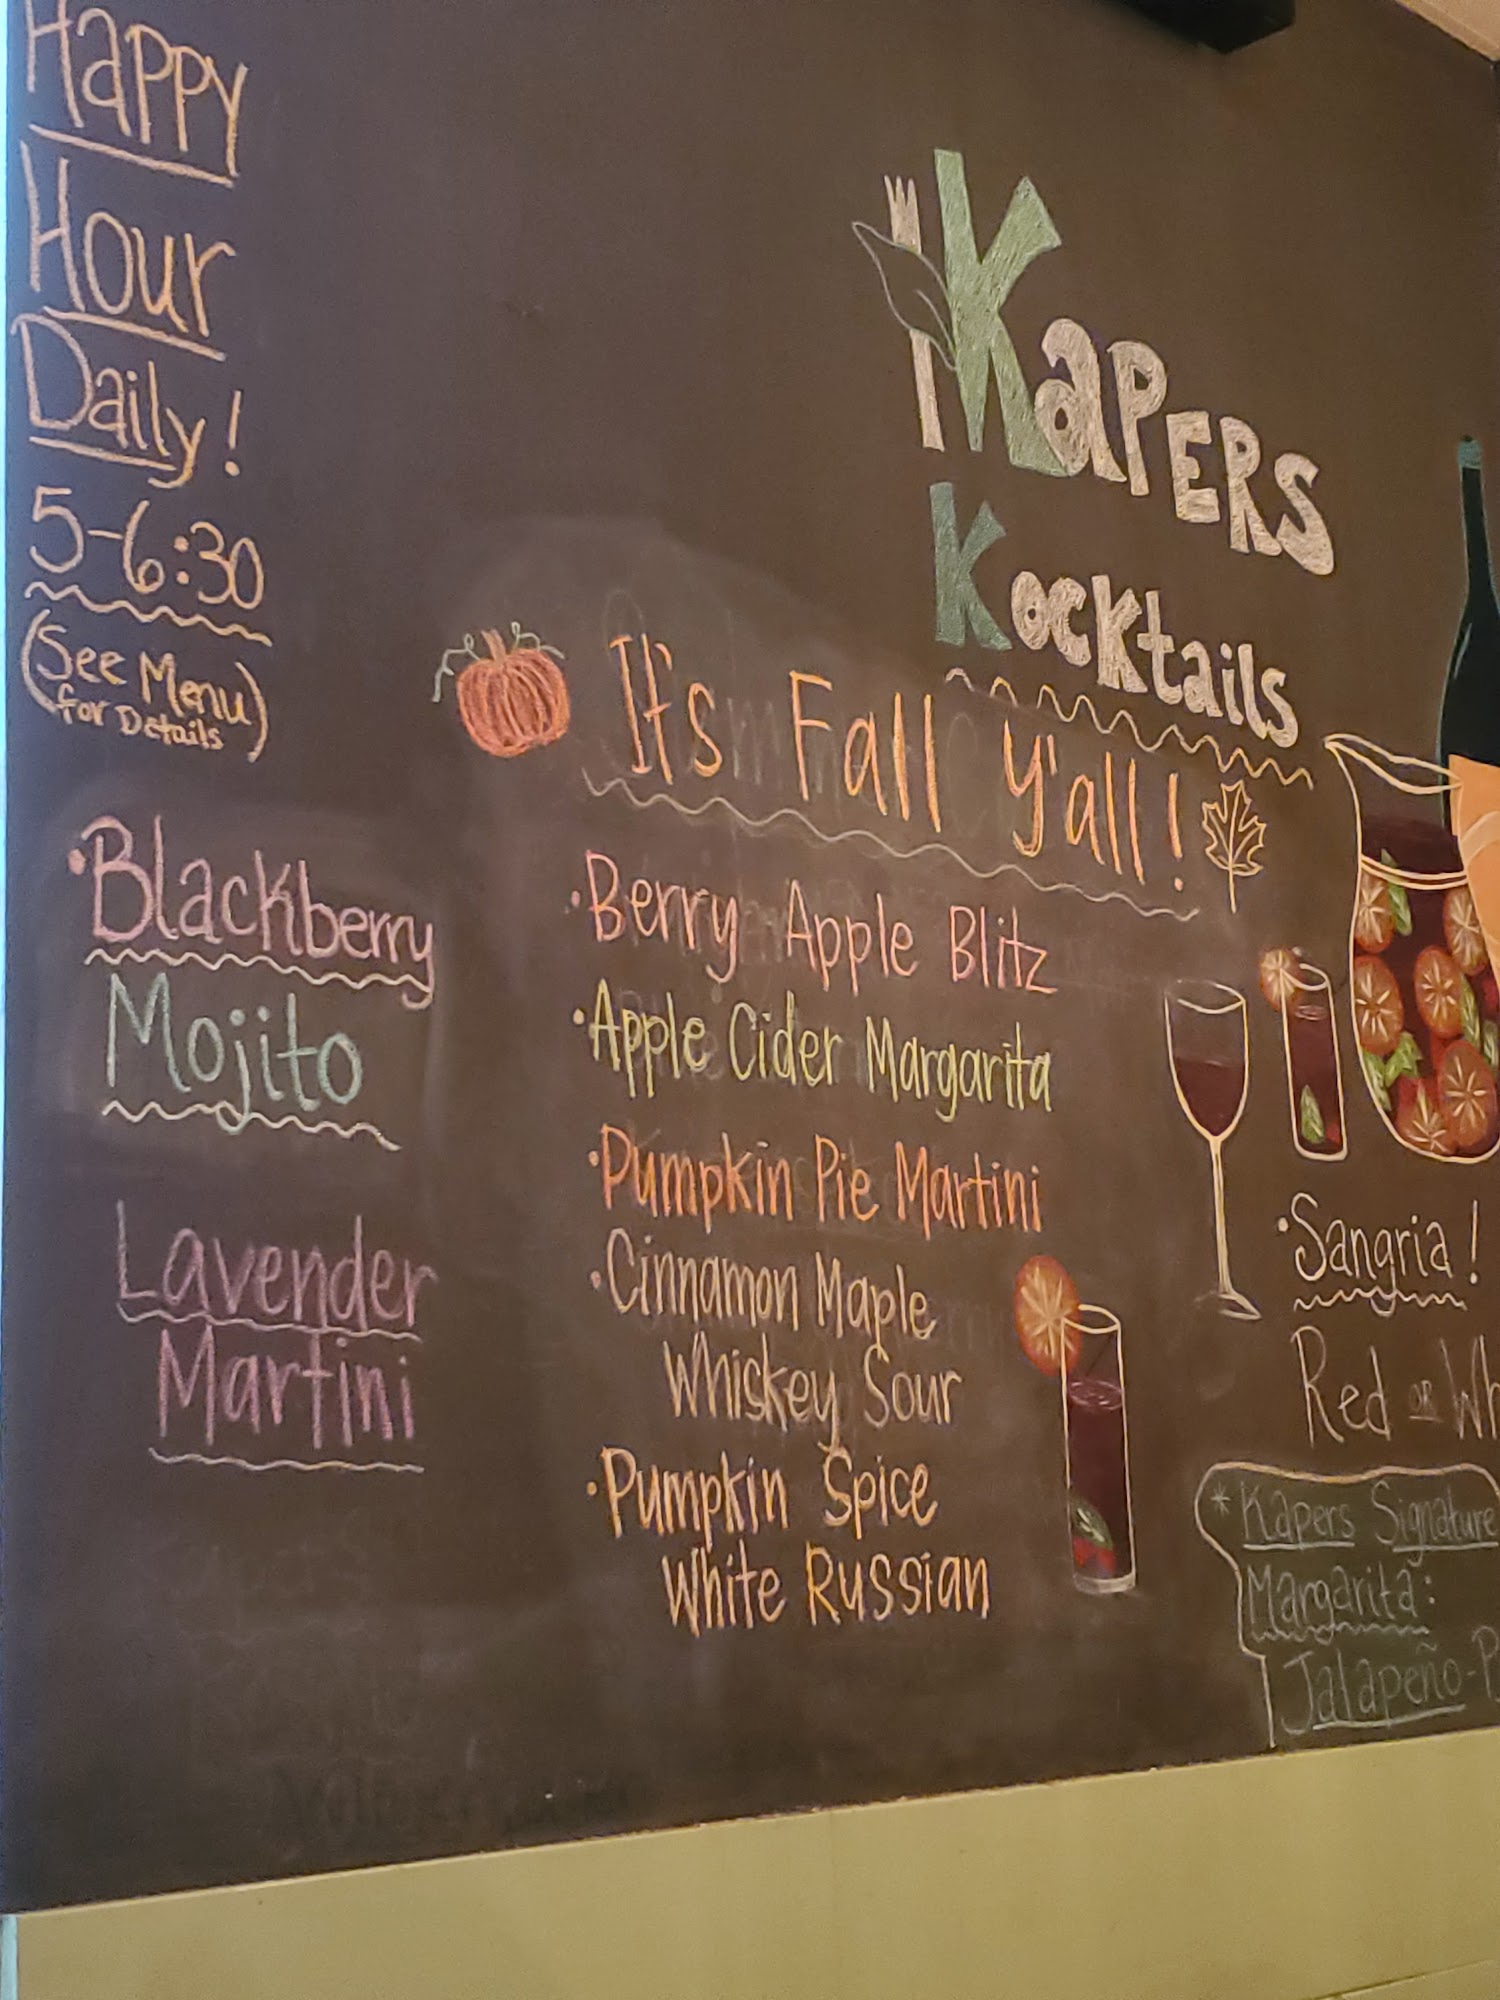 Happy
Hour
Daily!
5-6:30
(See Menu
for Details)
•Blackberry
Mojito
Lavender
Martini
Kapers
Kocktails
It's Fall Y'all!
•Berry Apple Blitz
•Apple Cider Margarita
•Pumpkin Pie Martini
•Cinnamon Maple
Whiskey Sour
•Pumpkin Spice
White Russian
•Sangria!
Red or Wh
*Kapers Signature
Margarita:
Jalapeño-P